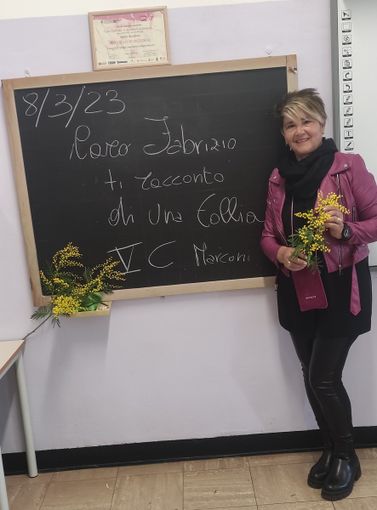 8/3/23
Caro Fabrizio
ti racconto
di una Follia
V C Marconi